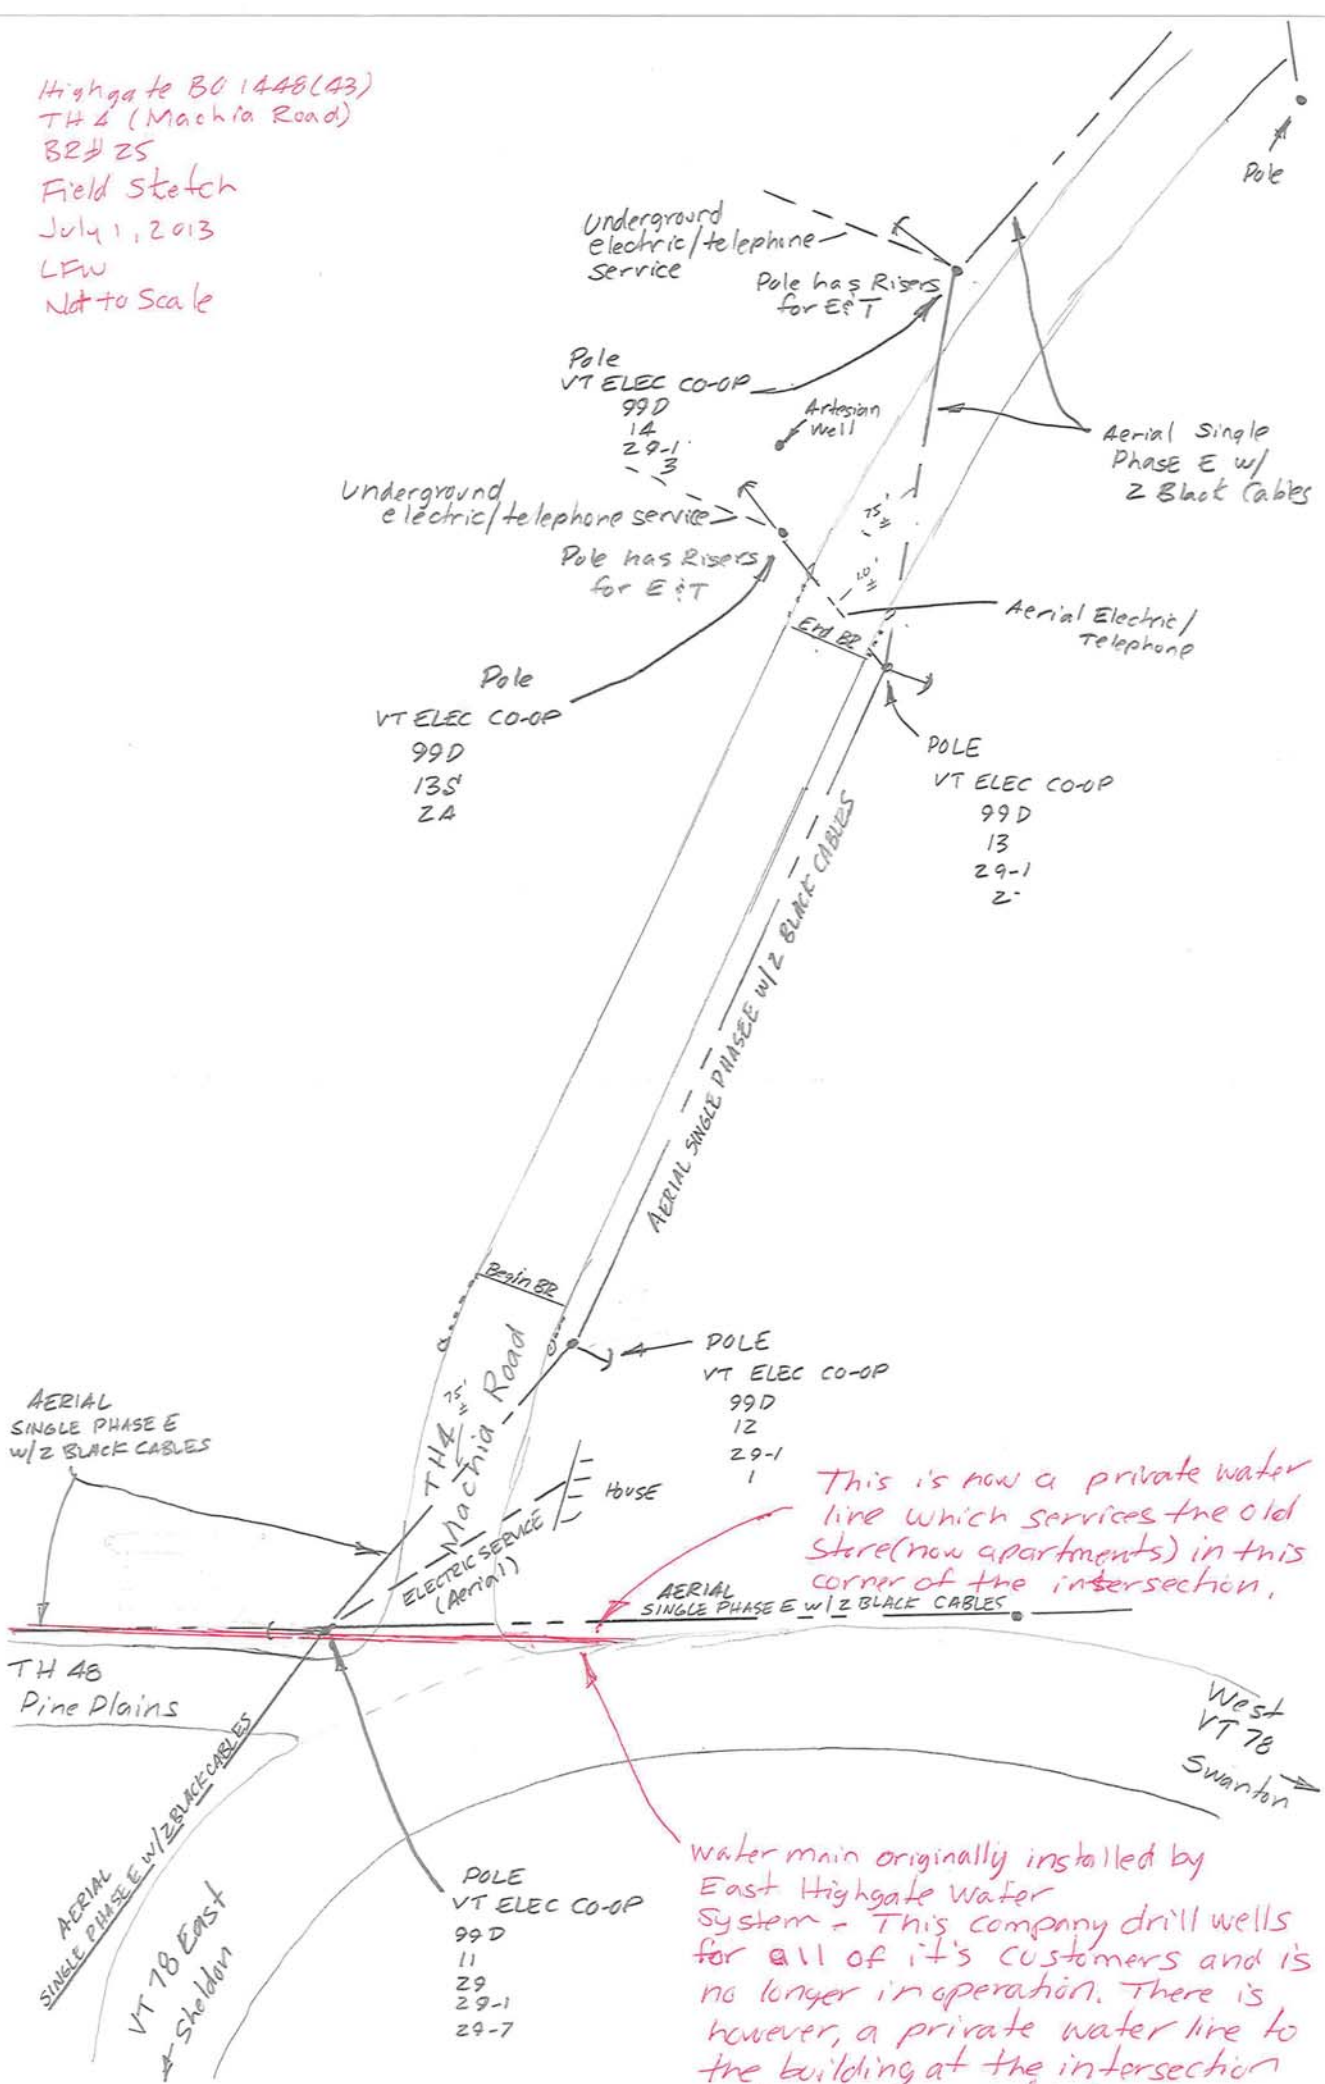 Highgate BO 1448(43)
TH 4 (Machia Road)
BR# 25
Field Sketch
July 1, 2013
LFW
Not to Scale
Pole
Underground
electric/telephone
service
Pole has Risers
for E&T
Pole
VT ELEC CO-OP
99D
14
29-1
3
Artesian
Well
Aerial Single
Phase E w/
2 Black Cables
Underground
electric/telephone service
Pole has Risers
for E&T
75'±
10'±
Aerial Electric/
Telephone
End BR
Pole
VT ELEC CO-OP
99D
13S
2A
POLE
VT ELEC CO-OP
99D
13
29-1
2
AERIAL SINGLE PHASEE W/2 BLACK CABLES
Begin BR
POLE
VT ELEC CO-OP
99D
12
29-1
1
TH4
Machia Road
75'±
AERIAL
SINGLE PHASE E
W/2 BLACK CABLES
HOUSE
ELECTRIC SERVICE
(Aerial)
This is now a private water
line which services the old
Store(now apartments) in this
corner of the intersection.
AERIAL
SINGLE PHASE E W/2 BLACK CABLES
TH 48
Pine Plains
West
VT 78
Swanton
AERIAL
SINGLE PHASE E W/2 BLACK CABLES
VT 78 East
Sheldon
POLE
VT ELEC CO-OP
99D
11
29
29-1
29-7
water main originally installed by
East Highgate Water
System - This company drill wells
for all of it's customers and is
no longer in operation. There is
however, a private water line to
the building at the intersection